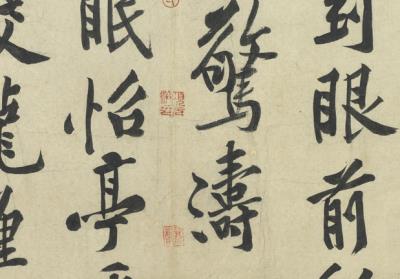 到眼前
驚濤
眠怡亭
龍